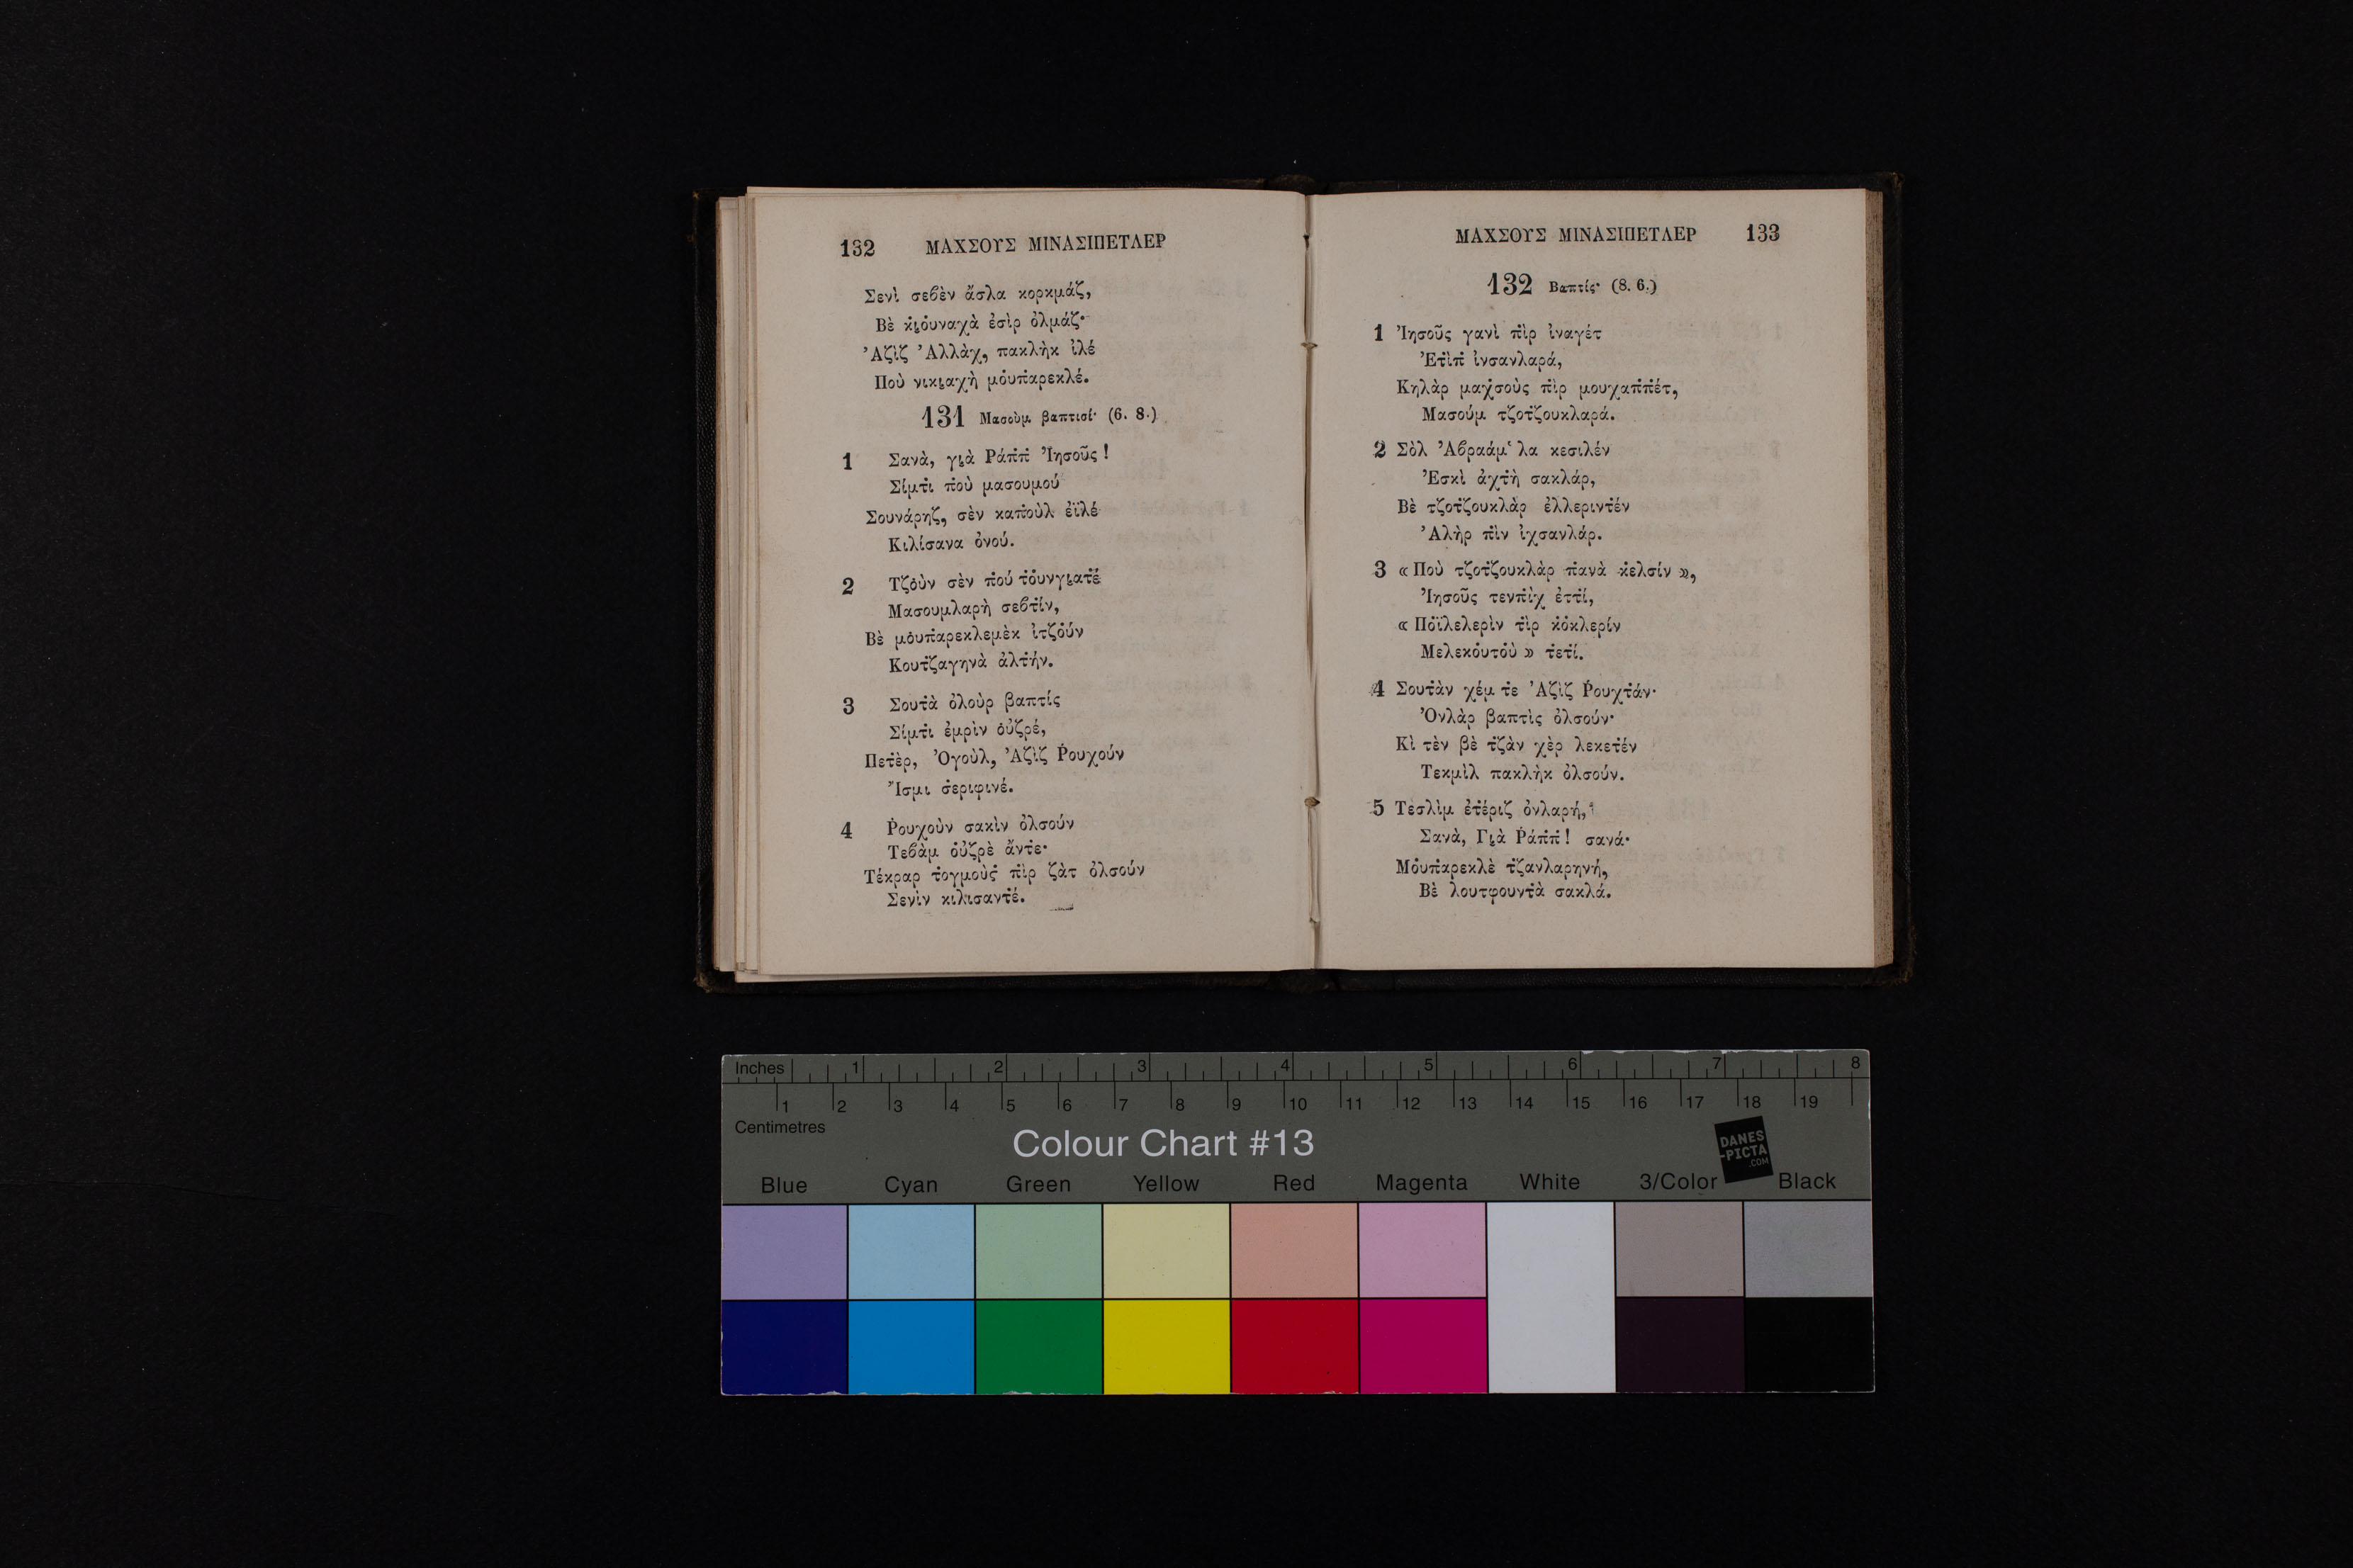 132 ΜΑΧΣΟΥΣ ΜΙΝΑΣΙΠΕΤΛΕΡ
Σενὶ σεβὲν ἄσλα κορκμάζ,
Βὲ κ̇ι̯οὐναχὰ ἐσὶρ ὀλμάζ·
Ἀζὶζ Ἀλλὰχ, πακλὴκ ἰλέ
Ποὺ νικι̯αχὴ μο̇υπ̇αρεκλέ.
131 Μασοὺμ βαπτισί· (6. 8.)
1 Σανὰ, γι̯ὰ Ράπ̇π̇ Ἰησοῦς !
Σίμτ̇ι π̇οὺ μασουμού
Σουνάρηζ, σὲν καπ̇οὺλ ἐϊλέ
Κιλίσανα ὀνού.
2 Τζο̇ὺν σὲν π̇ού τ̇ο̇υνγι̯ατ̇έ
Μασουμλαρὴ σεβτ̇ίν,
Βὲ μο̇υπ̇αρεκλεμὲκ ἰτζο̇ύν
Κουτ̇ζαγηνὰ ἀλτ̇ήν.
3 Σουτ̇ὰ ὀλοὺρ βαπτίς
Σίμτ̇ι ἐμρὶν ο̇ὐζρέ,
Πετ̇ὲρ, Ὀγοὺλ, Ἀζὶζ Ῥουχούν
Ἴσμι σ̇εριφινέ.
4 Ῥουχοὺν σακὶν ὀλσούν
Τεβὰμ ο̇ὐζρὲ ἄντ̇ε·
Τέκραρ τ̇ογμοὺς̇ π̇ὶρ ζὰτ ὀλσούν
Σενὶν κιλισαντ̇έ.
ΜΑΧΣΟΥΣ ΜΙΝΑΣΙΠΕΤΛΕΡ 133
132 Βαπτίς· (8. 6.)
1 Ἰησοῦς γανὶ π̇ὶρ ἰναγέτ
Ἐτ̇ὶπ̇ ἰνσανλαρά,
Κηλὰρ μαχσοὺς π̇ὶρ μουχαπ̇π̇έτ,
Μασούμ τζοτ̇ζουκλαρά.
2 Σὸλ Ἀβραάμ῾ λα κεσιλέν
Ἐσκὶ ἀχτ̇ὴ σακλάρ,
Βὲ τζοτ̇ζουκλὰρ ἐλλεριντ̇έν
Ἀλὴρ π̇ὶν ἰχσανλάρ.
3 « Ποὺ τζοτ̇ζουκλὰρ π̇ανὰ κ̇ελσίν »,
Ἰησοῦς τενπ̇ὶχ ἐτ̇τ̇ί,
« Πο̇ϊλελερὶν τ̇ὶρ κ̇ο̇κλερίν
Μελεκο̇υτο̇ὺ » τ̇ετ̇ί.
4 Σουτ̇ὰν χέμ τ̇ε Ἀζὶζ Ῥουχτ̇άν·
Ὀνλὰρ βαπτὶς ὀλσούν·
Κὶ τὲν βὲ τ̇ζὰν χὲρ λεκετ̇έν
Τεκμὶλ πακλὴκ ὀλσούν.
5 Τεσλὶμ ἐτ̇έριζ ὀνλαρή,
Σανὰ, Γι̯ὰ Ῥάπ̇π̇ ! σανά·
Μο̇υπ̇αρεκλὲ τ̇ζανλαρηνή,
Βὲ λουτφουντ̇ὰ σακλά.
Inches 1 2 3 4 5 6 7 8
1 2 3 4 5 6 7 8 9 10 11 12 13 14 15 16 17 18 19
Centimetres
Colour Chart #13
DANES
-PICTA
.COM
Blue Cyan Green Yellow Red Magenta White 3/Color Black